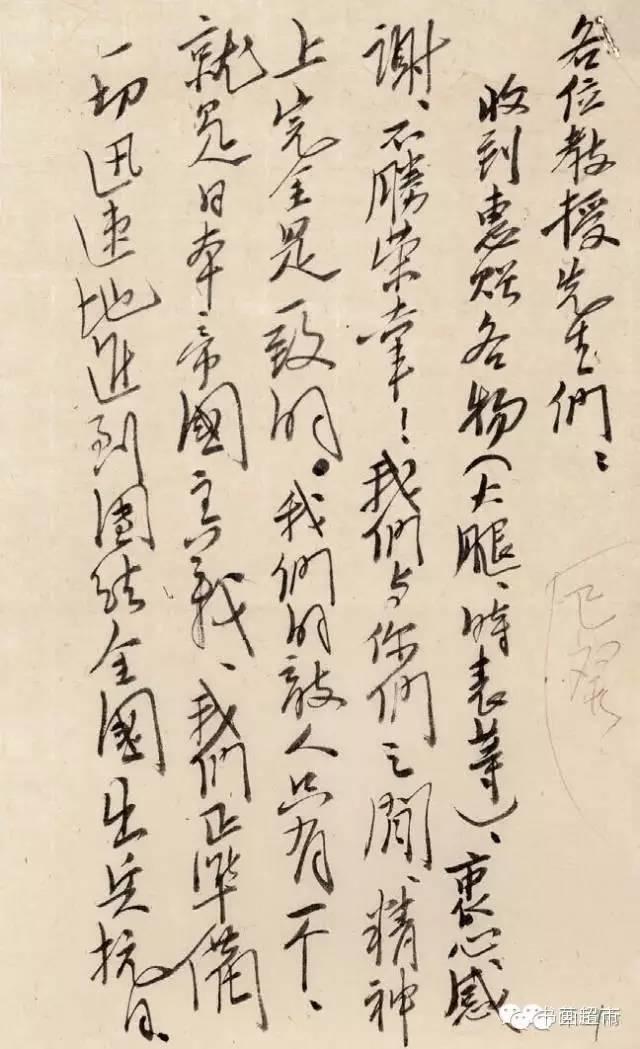 各位教授先生們：
收到惠贈各物（火腿、時表等）、衷心感
謝、不勝榮幸！我們与你們之間、精神
上完全是一致的。我們的敵人只有一个、
就是日本帝國主義、我們正準備
一切迅速地進到團結全國出兵抗日、
已摄
书画超市